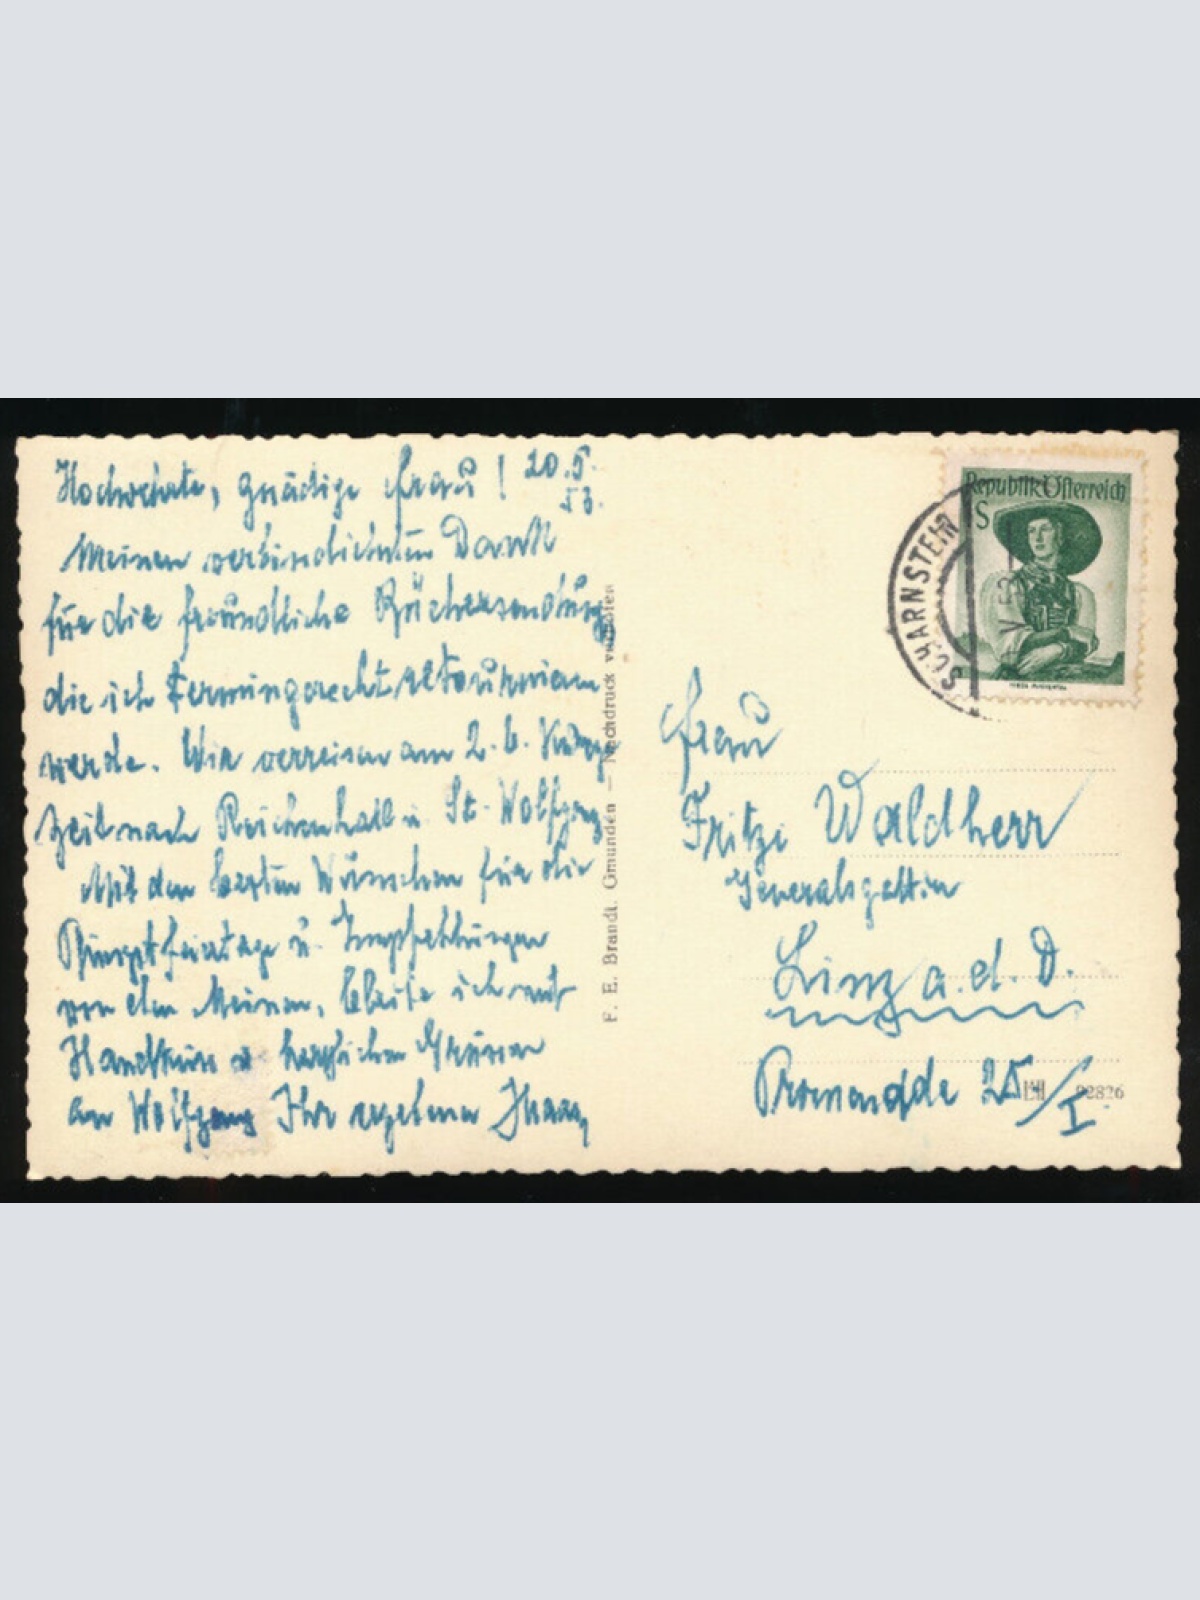 Hochverehrte, gnädige Frau! 20.5.
53.
Meinen verbindlichsten Dank
für die freundliche Büchersendung,
die ich termingerecht retournieren
werde. Wir verreisen am 2.6. kurz
zeit nach Reichenhall u. St. Wolfgang.
Mit den besten Wünschen für die
Pfingstfeiertage u. Empfehlungen
von den Meinen, bleibe ich mit
Handkuss u. herzlichen Grüssen
an Wolfgang Ihr ergebener
F. E. Brandt, Gmunden — Nachdruck verboten
Republik Österreich
S
SCHARNSTEIN
Frau
Fritzi Waldherr
Generalsgattin
Linz a.d. D.
Promenade 25/I.
92826